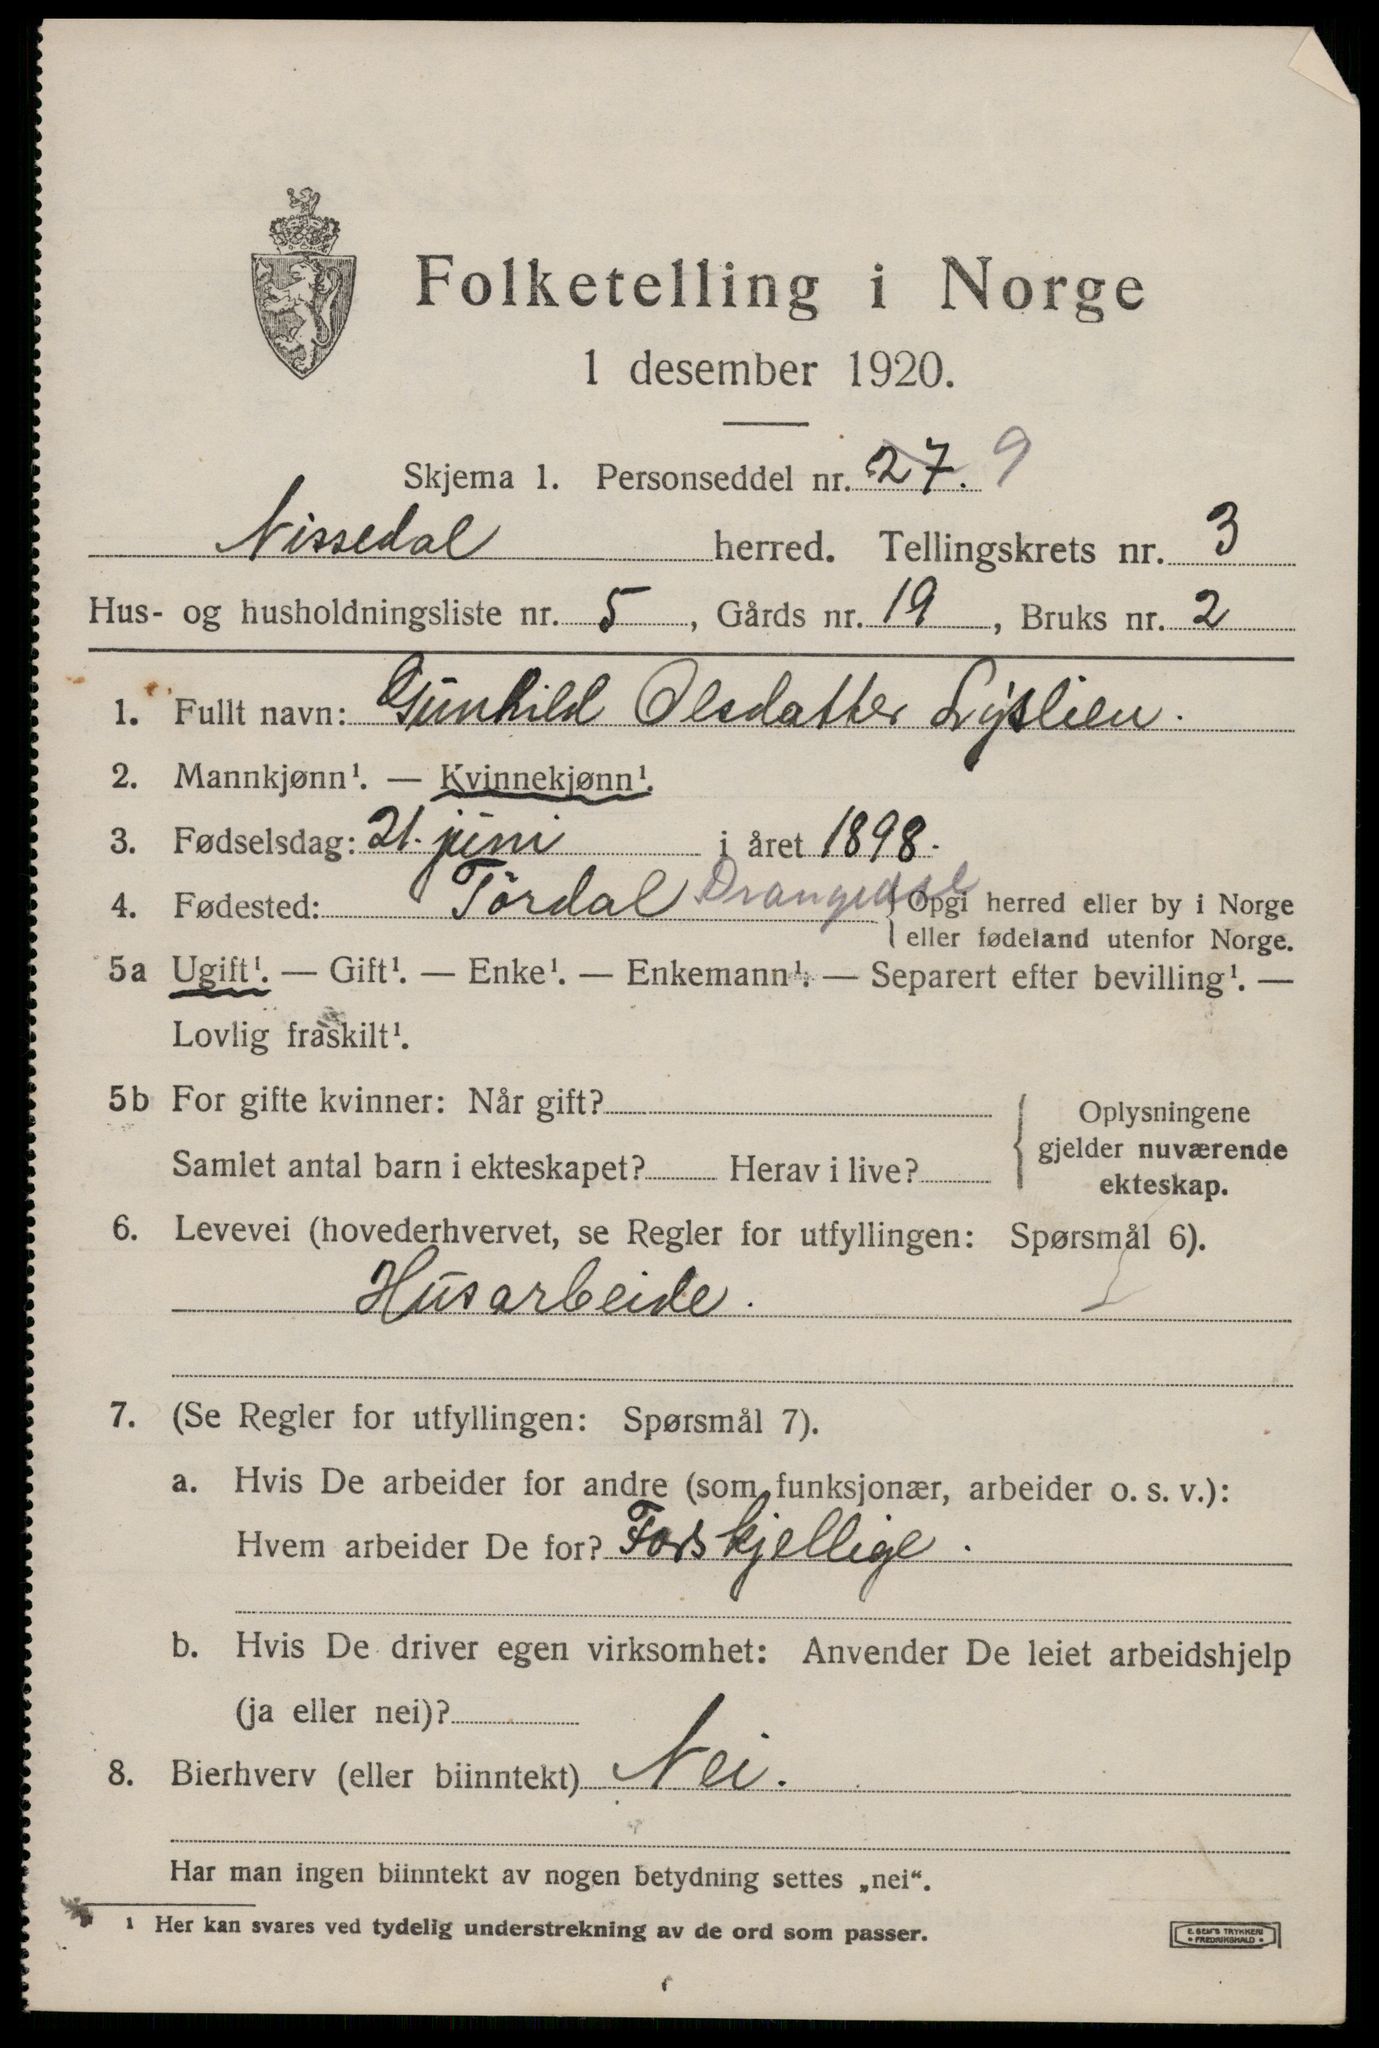 Folketelling i Norge
1 desember 1920.
Skjema 1. Personseddel nr. 27. 9
Nissedal herred. Tellingskrets nr. 3
Hus- og husholdningsliste nr. 5, Gårds nr. 19, Bruks nr. 2
1. Fullt navn: Gunhild Olsdatter Lyslien.
2. Mannkjønn¹. — Kvinnekjønn¹.
3. Fødselsdag: 21. juni i året 1898.
4. Fødested: Tördal Drangedal { Opgi herred eller by i Norge
eller fødeland utenfor Norge.
5a Ugift¹. — Gift¹. — Enke¹. — Enkemann¹. — Separert efter bevilling¹. —
Lovlig fraskilt¹.
5b For gifte kvinner: Når gift?
Samlet antal barn i ekteskapet? Herav i live?
{ Oplysningene
gjelder nuværende
ekteskap.
6. Levevei (hovederhvervet, se Regler for utfyllingen: Spørsmål 6).
Husarbeide.
7. (Se Regler for utfyllingen: Spørsmål 7).
a. Hvis De arbeider for andre (som funksjonær, arbeider o. s. v.):
Hvem arbeider De for? Forskjellige.
b. Hvis De driver egen virksomhet: Anvender De leiet arbeidshjelp
(ja eller nei)?
8. Bierhverv (eller biinntekt) Nei.
Har man ingen biinntekt av nogen betydning settes „nei“.
1 Her kan svares ved tydelig understrekning av de ord som passer.
E. SEM'S TRYKKERI
• FREDRIKSHALD •